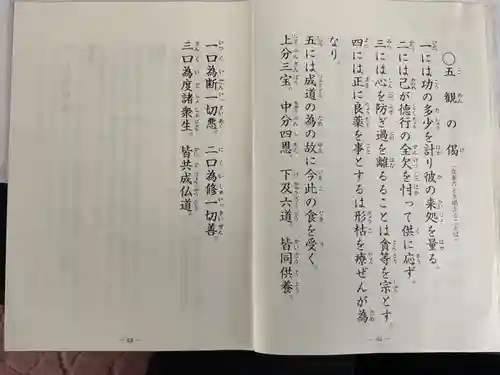 〇五観の偈
一には功の多少を計り彼の来処を量る。
二には己が徳行の全欠を忖って供に応ず。
三には心を防ぎ過を離るることは貪等を宗とす。
四には正に良薬を事とするは形枯を療ぜんが為
なり。
五には成道の為の故に今此の食を受く。
上分三宝。中分四恩。下及六道。皆同供養。
一口為断一切悪。二口為修一切善。
三口為度諸衆生。皆共成仏道。